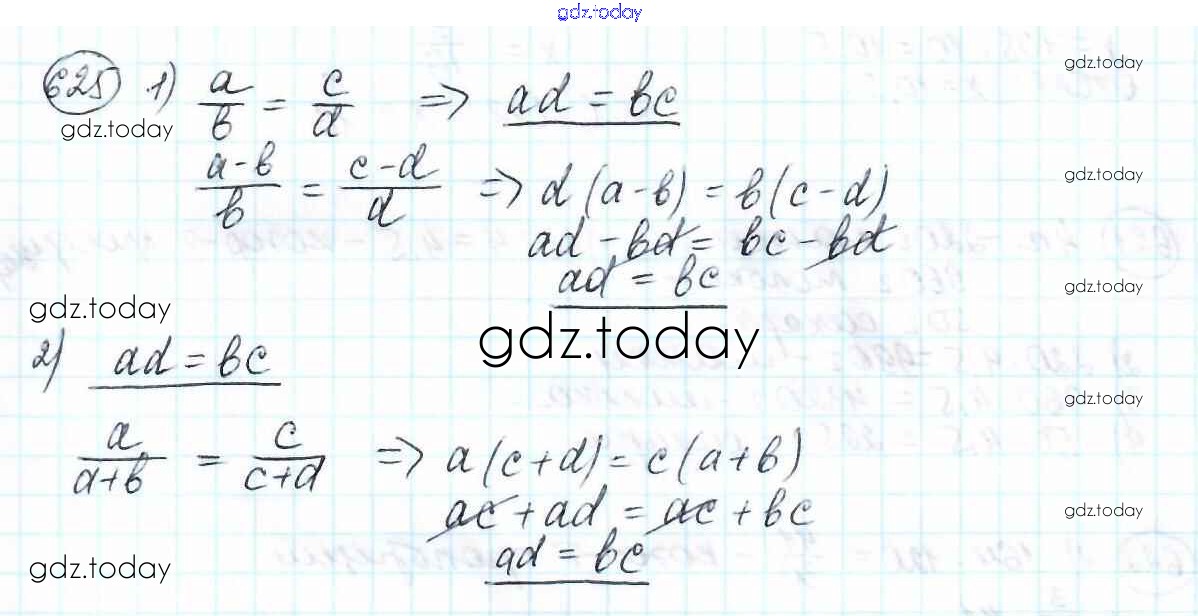 gdz.today
625 1) a/b = c/d => ad = bc
gdz.today
gdz.today
(a-b)/b = (c-d)/d => d(a-b) = b(c-d)
gdz.today
ad - bd = bc - bd
ad = bc
gdz.today
gdz.today
gdz.today
2) ad = bc
gdz.today
a/(a+b) = c/(c+d) => a(c+d) = c(a+b)
ac + ad = ac + bc
gdz.today
ad = bc
gdz.today